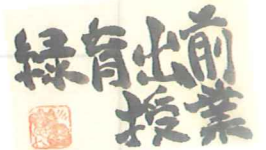 緑育出前
授業